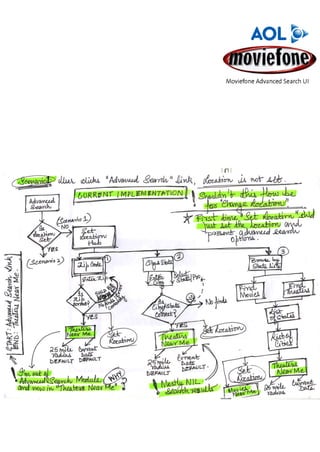 AOL
moviefone
Moviefone Advanced Search UI
Scenario 1 User clicks "Advanced Search" link, Location is not set.
CURRENT IMPLEMENTATION
Shouldn't this flow be
for "Change Location"
First time "Set Location" should
just set the location and
present advanced search
options.
Advanced
Search
(Scenario 1)
NO
Is
Location
Set
YES
(Scenario 2)
Set
Location
Hub
1
Zip Code
Enter Zip
Is
Zip
correct?
YES
Theaters
Near Me
25 mile
radius
DEFAULT
Current
Date
DEFAULT
Set
Location
2
City & State
Enter
City
Select
State
Is
City & State
correct?
No finds
YES
Theaters
Near Me
Set Location
25 mile
radius
DEFAULT
Current
Date
DEFAULT
Mostly NIL
Search results
3
Browse by
State List
Find
Movies
Find
Theaters
List of
States
List of
Cities
Theaters
Near Me
Set
Location
Movies
Near Me
25 mile
radius
Current
Date
START: Advanced Search Link
END: Theaters Near Me
I'm out of
Advanced Search Module
and now in "Theaters Near Me"
WHY